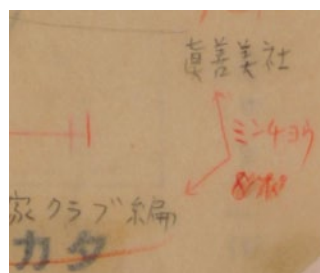 眞善美社
ミンチヨウ
8ポ
家クラブ編
カタ